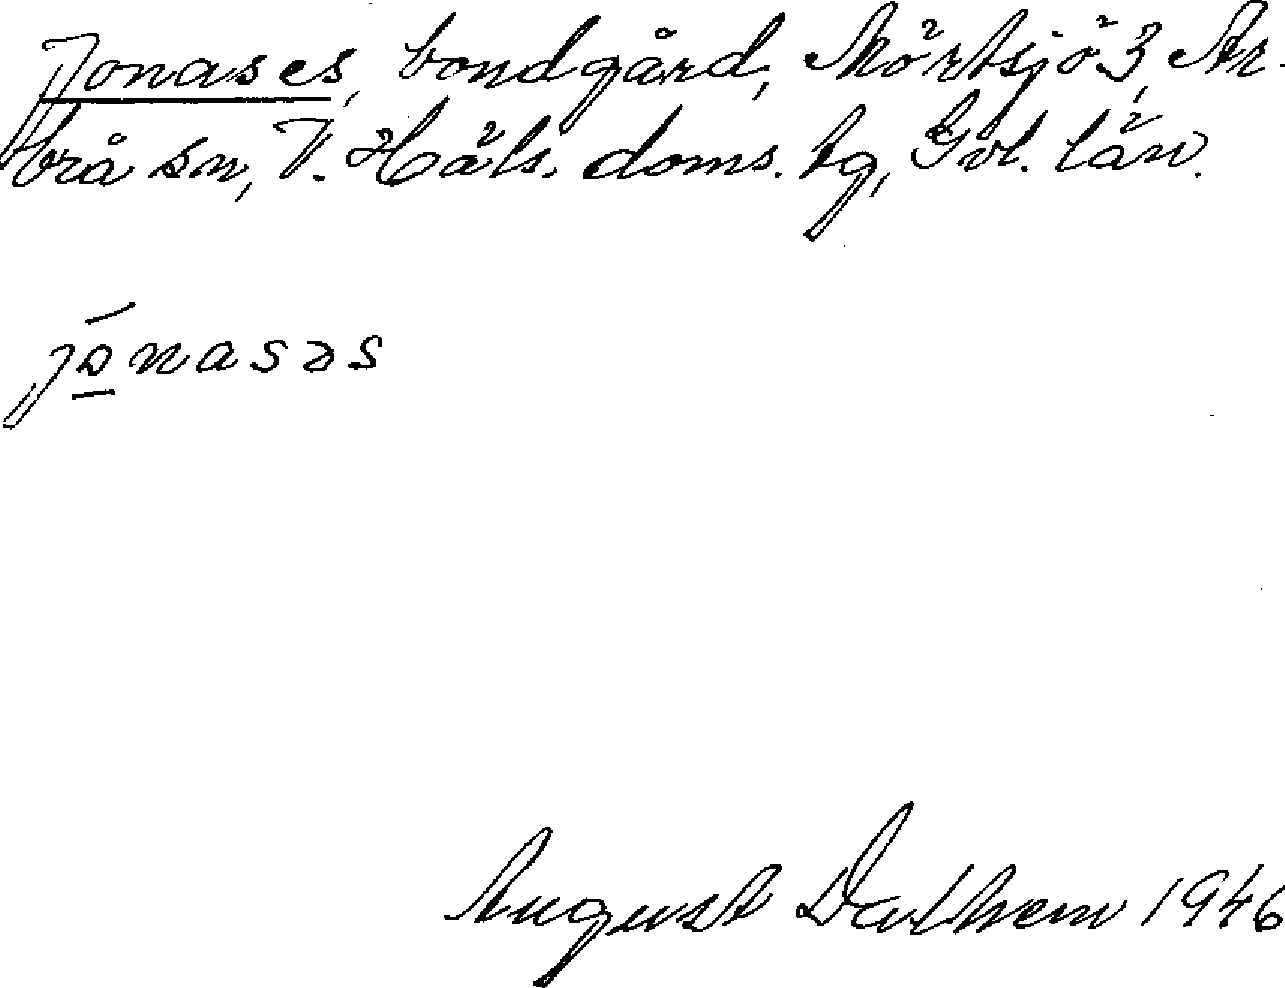 Jonases, bondgård, Mörtsjö 3, Ar-
brå sn, V. Häls. doms. tg, Gvl. län.
jō̲nasəs
August Dalhem 1946